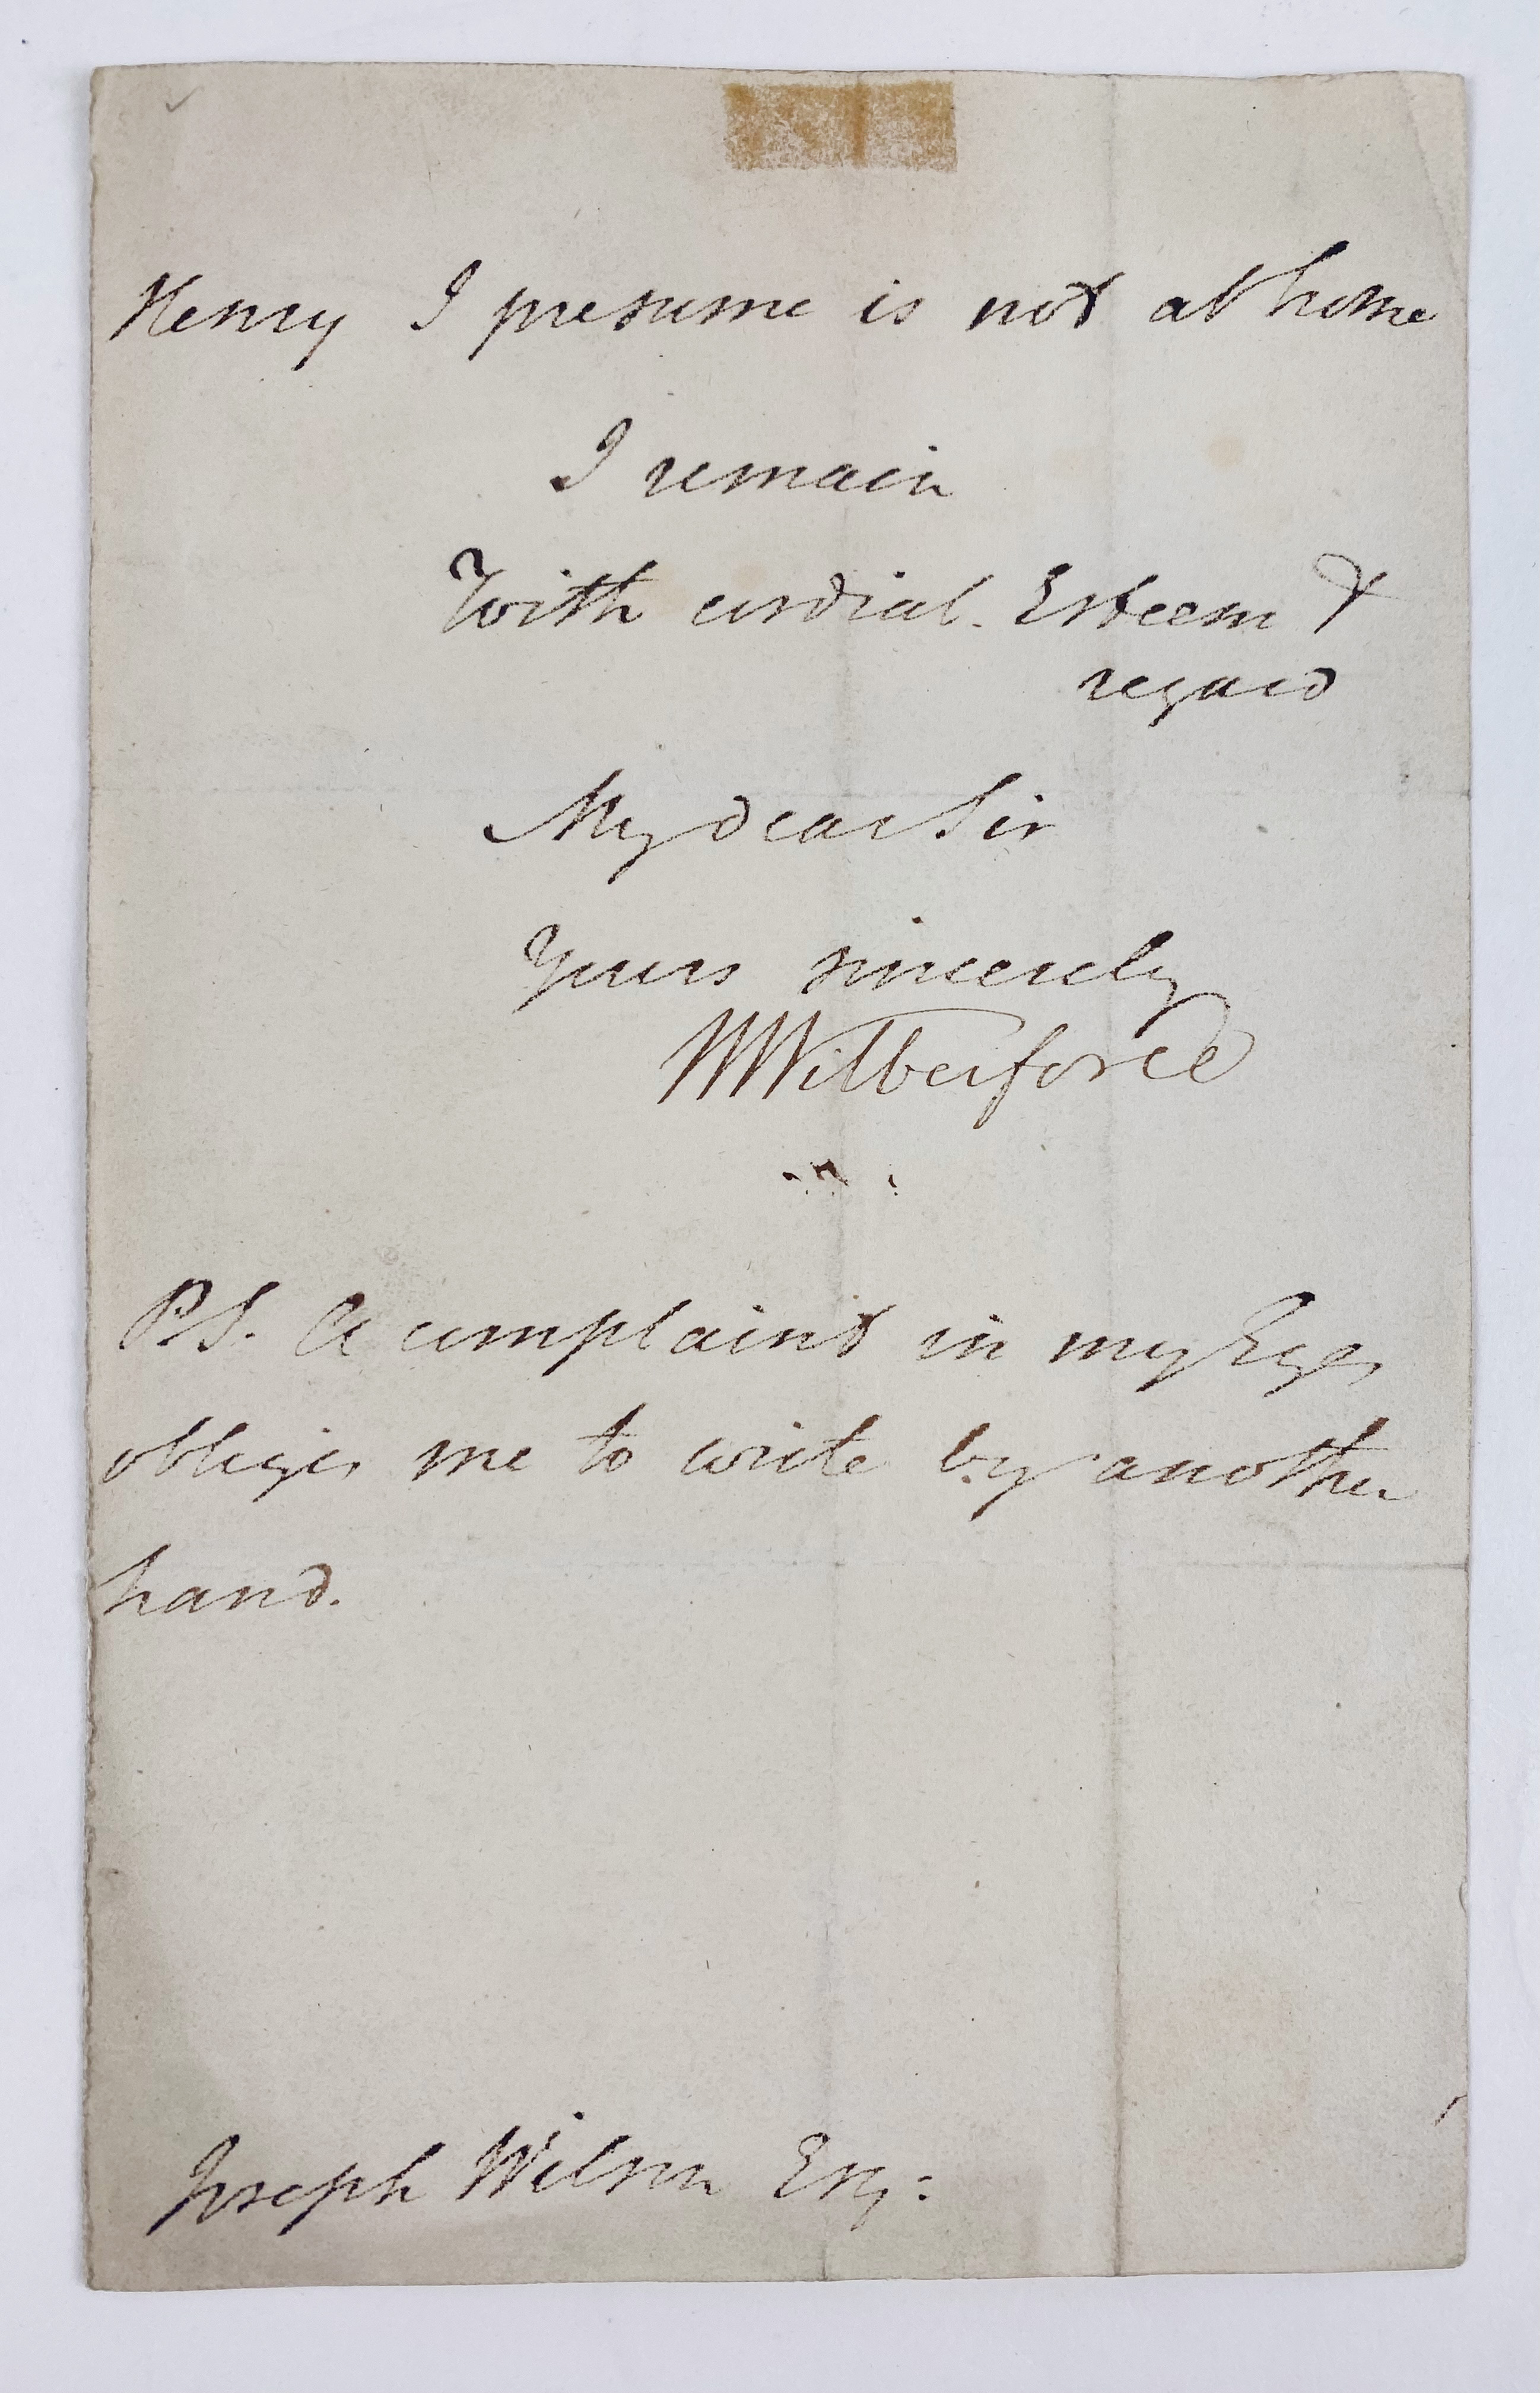 Henry I presume is not at home
I remain
With cordial Esteem &
regard
My dear Sir
Yours sincerely
W Wilberforce
P.S. A complaint in my Eyes
obliges me to write by another
hand.
Joseph Wilson Esq: